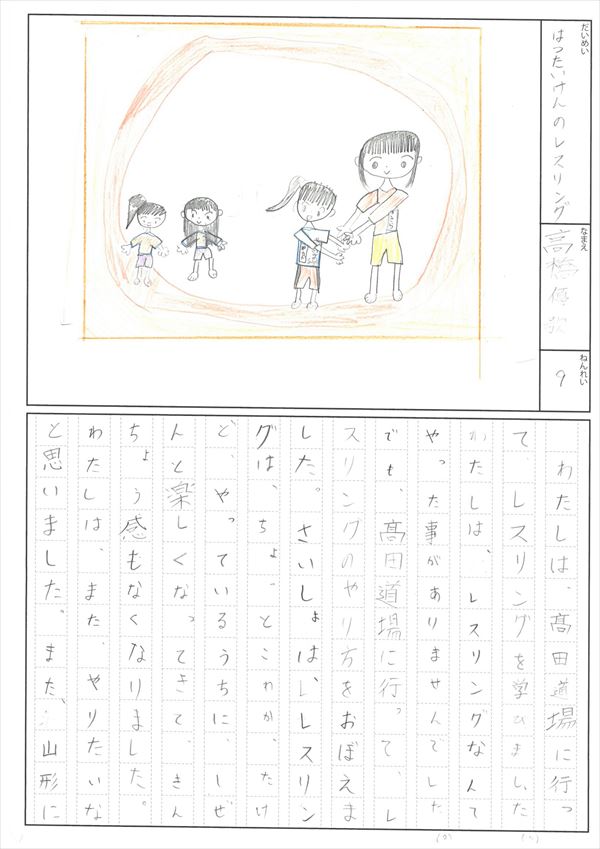 だいめい
はつたいけんのレスリング
なまえ
高橋
ねんれい
9
わたしは、髙田道場に行っ
て、レスリングを学びました
わたしは、レスリングなんて
やった事がありませんでした
でも、髙田道場に行って、レ
スリングのやり方をおぼえま
した。さいしょは、レスリン
グは、ちょっとこわかったけ
ど、やっているうちに、しぜ
んと楽しくなってきて、きん
ちょう感もなくなりました。
わたしは、また、やりたいな
と思いました。また、山形に